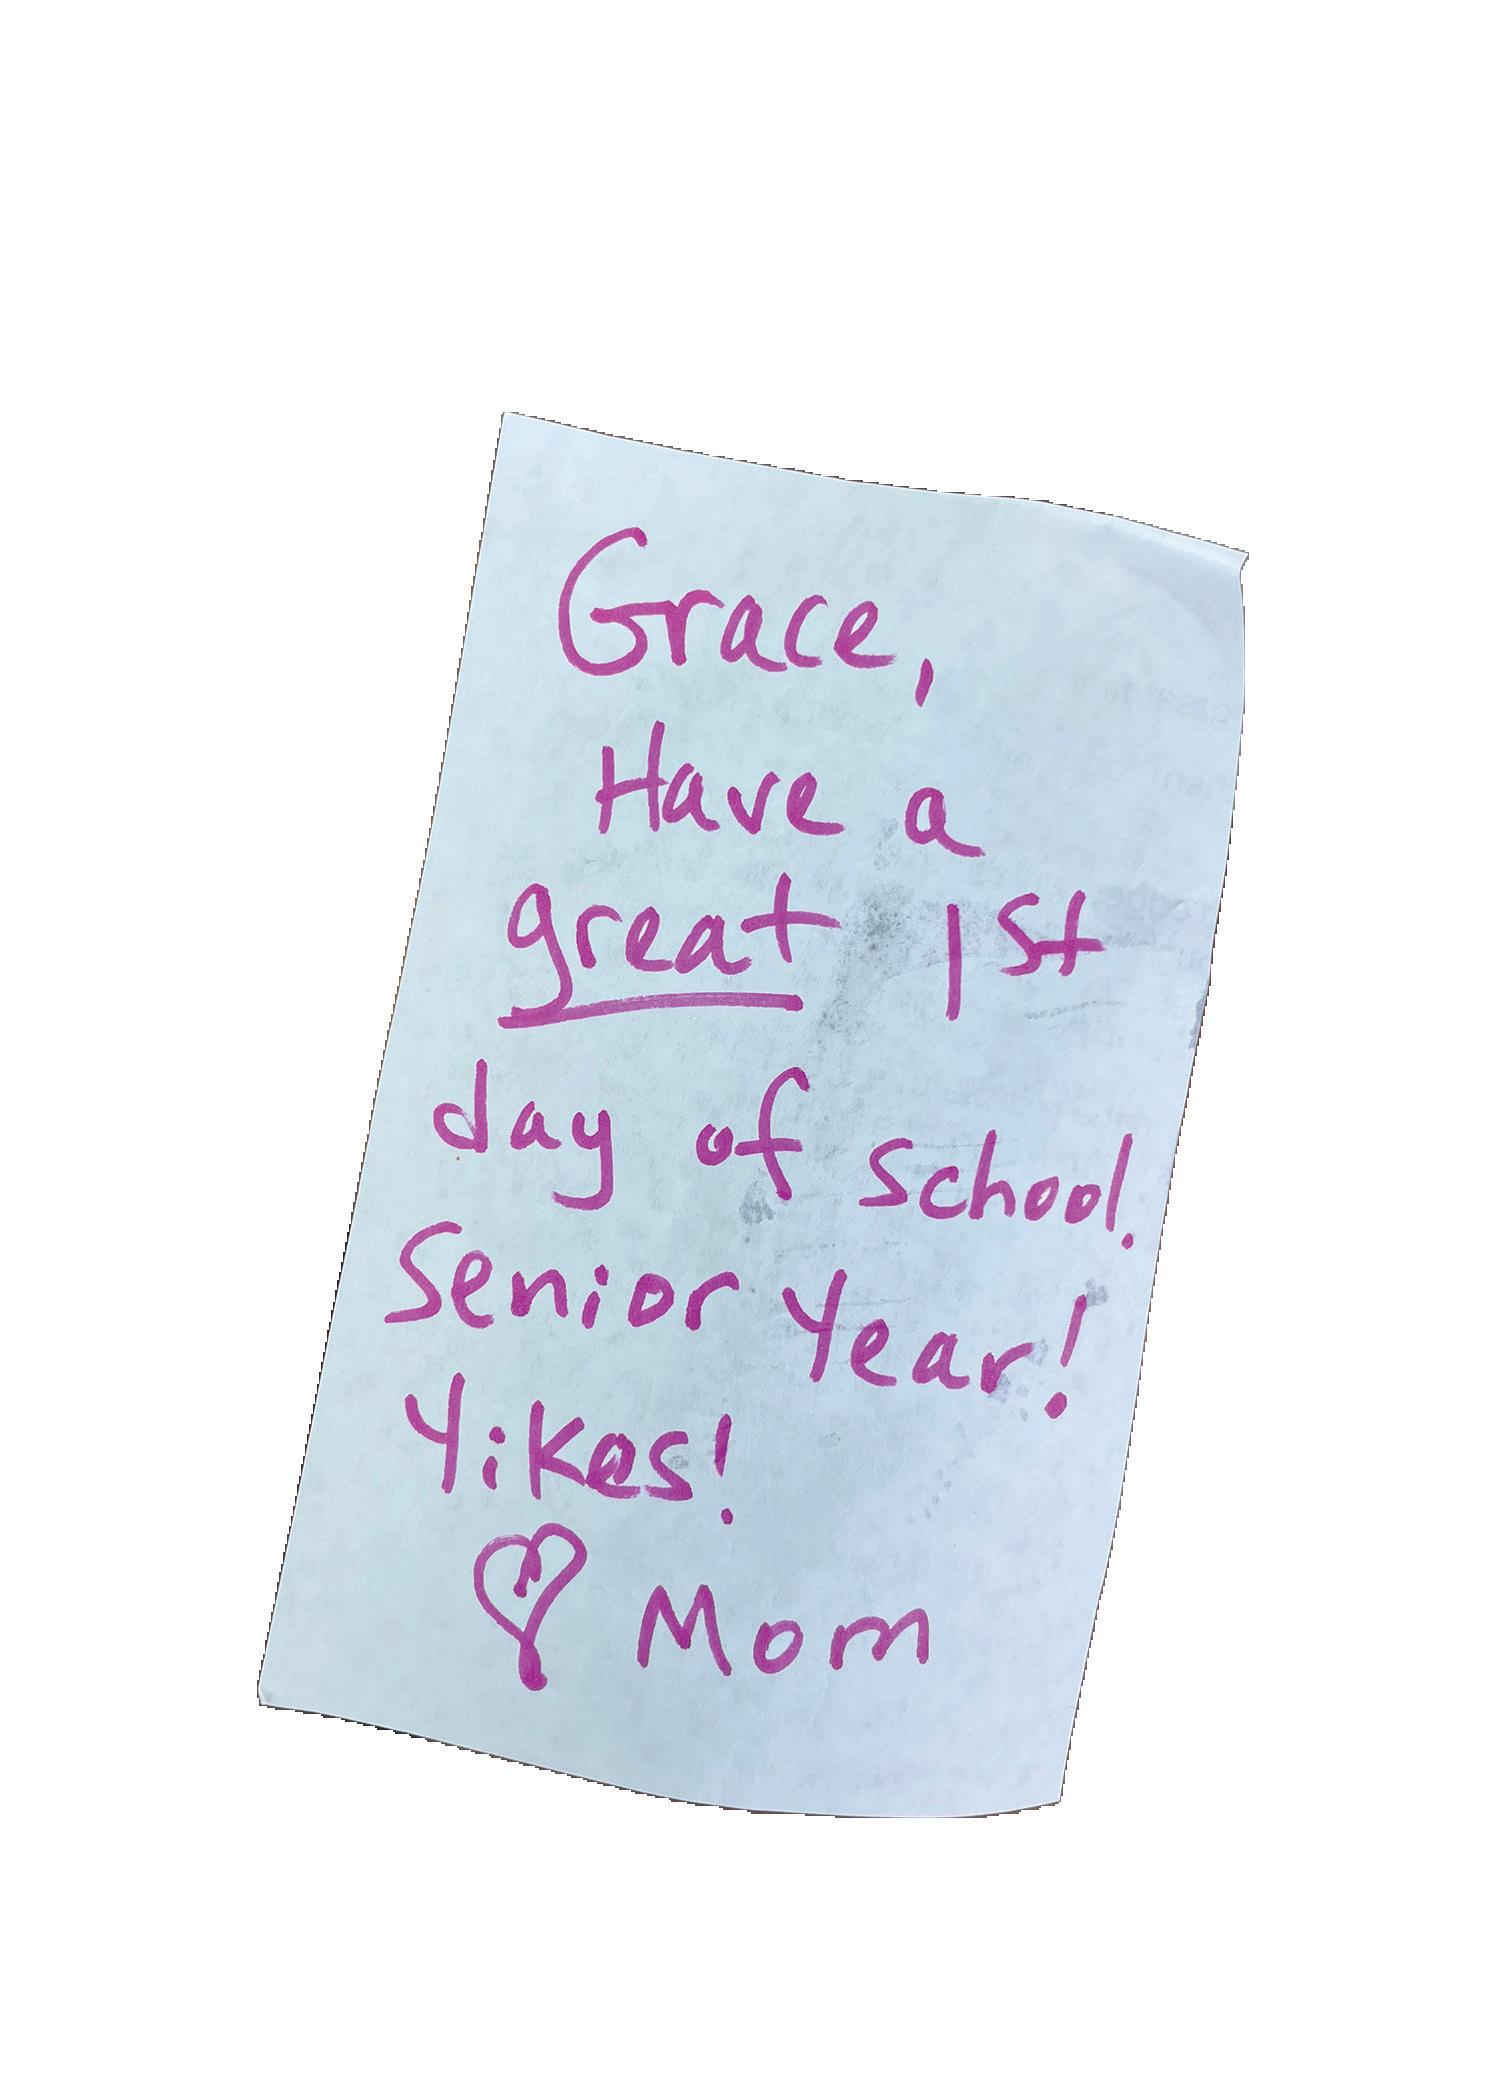 Grace,
Have a
great 1st
day of school.
Senior Year!
Yikes!
♡ Mom